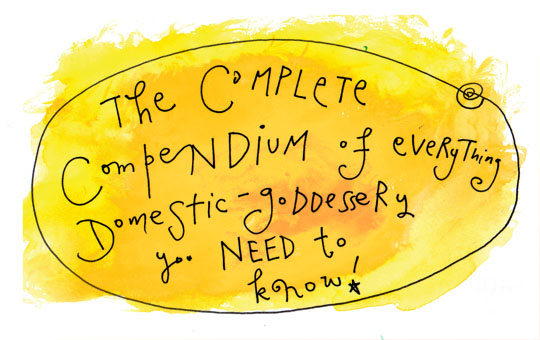 The COMPLETE
CompeNDiUM of eveRyThing
Domestic-goDDesseRy
you NEED to
know!